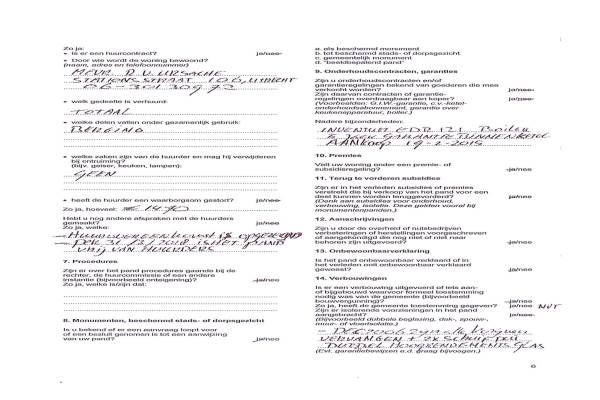 Zo ja:
• Is er een huurcontract? ja/nee
• Door wie wordt de woning bewoond?
(naam, adres en telefoonnummer)
MEVR D.V. URSACHE
STATIONSSTRAAT 106, UTRECHT
06-301 309 72
• welk gedeelte is verhuurd:
TOTAAL
• welke delen vallen onder gezamenlijk gebruik:
BERGING
• welke zaken zijn van de huurder en mag hij verwijderen
bij ontruiming?
(bijv. geiser, keuken, lampen):
GEEN
• heeft de huurder een waarborgsom gestort? ja/nee
Zo ja, hoeveel: €
Hebt u nog andere afspraken met de huurders
gemaakt? ja/nee
Zo ja, welke:
- HUUROVEREENKOMST IS OPGEZEGD
- PER 31/12/2018 IS HET PAND
VRIJ VAN HUURDERS
7. Procedures
Zijn er over het pand procedures gaande bij de
rechter, de huurcommissie of een andere
instantie (bijvoorbeeld onteigening)? ja/nee
Zo ja, welke is/zijn dat:
8. Monumenten, beschermd stads- of dorpsgezicht
Is u bekend of er een aanvraag loopt voor
of een besluit genomen is tot een aanwijzing
van uw pand? ja/nee
a. als beschermd monument
b. tot beschermd stads- of dorpsgezicht
c. gemeentelijk monument
d. "beeldbepalend pand"
9. Onderhoudscontracten, garanties
Zijn u onderhoudscontracten en/of
garantieregelingen bekend van goederen die mee
verkocht worden? ja/nee
Zijn daarvan contracten of garantie-
regelingen overdraagbaar aan koper? ja/nee
(Voorbeelden: G.I.W.-garantie, c.v.-ketel-
onderhoudsabonnement, garantie over
keukenapparatuur, boiler.)
Nadere bijzonderheden:
INVENTUM EDR 121 Boiler
5 JAAR GARANTIE BINNENKETEL
AANKOOP 19-2-2015
10. Premies
Valt uw woning onder een premie- of
subsidieregeling? ja/nee
11. Terug te vorderen subsidies
Zijn er in het verleden subsidies of premies
verstrekt die bij verkoop van het pand voor een
deel kunnen worden teruggevorderd? ja/nee
(Denk aan subsidies voor onderhoud,
verbouwing, isolatie. Deze gelden vooral bij
monumentenpanden.)
12. Aanschrijvingen
Zijn u door de overheid of nutsbedrijven
verbeteringen of herstellingen voorgeschreven
of aangekondigd die nog niet of niet naar
behoren zijn uitgevoerd? ja/nee
13. Onbewoonbaarverklaring
Is het pand onbewoonbaar verklaard of in
het verleden ooit onbewoonbaar verklaard
geweest? ja/nee
14. Verbouwingen
Is er een verbouwing uitgevoerd of iets aan-
of bijgebouwd waarvoor formeel toestemming
nodig was van de gemeente (bijvoorbeeld
bouwvergunning)? ja/nee
Zo ja, heeft de gemeente toestemming gegeven? ja/nee NVT
Zijn er isolerende voorzieningen in het pand
aangebracht? ja/nee
(Bijvoorbeeld dubbele beglazing, dak-, spouw-,
muur- of vloerisolatie.)
- DEC 2006 zijn alle
VERVANGEN + 2X SCHUIFDEU
DUBBEL HOOGRENDEMENTS GLAS
(Evt. garantiebewijzen e.d. graag bijvoegen.)
6